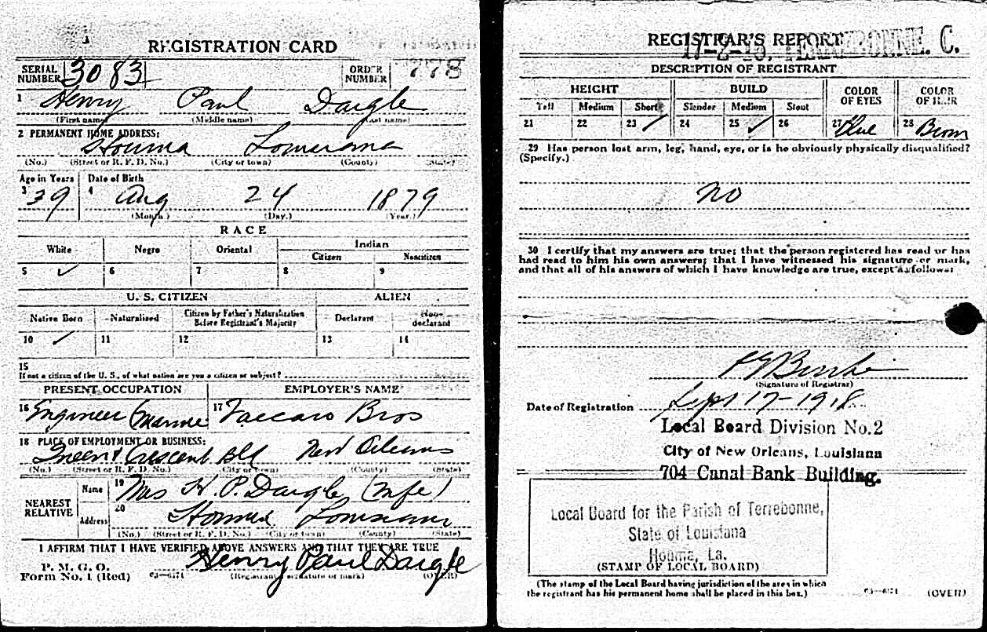 REGISTRATION CARD
SERIAL NUMBER 3083 ORDER NUMBER 778
1 Henry Paul Daigle
(First name) (Middle name) (Last name)
2 PERMANENT HOME ADDRESS:
Houma Louisiana
(No.) (Street or R. F. D. No.) (City or town) (County) (State)
Age in Years Date of Birth
3 39 4 Aug 24 1879
(Month.) (Day.) (Year.)
RACE
White Negro Oriental Indian
Citizen Noncitizen
5 ✓ 6 7 8 9
U. S. CITIZEN ALIEN
Native Born Naturalized Citizen by Father's Naturalization Before Registrant's Majority Declarant Non-declarant
10 ✓ 11 12 13 14
15
If not a citizen of the U. S., of what nation are you a citizen or subject?
PRESENT OCCUPATION EMPLOYER'S NAME
16 Engineer Marine 17 Vaccaro Bros
18 PLACE OF EMPLOYMENT OR BUSINESS:
Queen & Crescent Bld New Orleans
(No.) (Street or R. F. D. No.) (City or town) (County) (State)
NEAREST RELATIVE Name 19 Mrs H. P. Daigle (Wife)
Address 20 Houma Louisiana
(No.) (Street or R. F. D. No.) (City or town) (County) (State)
I AFFIRM THAT I HAVE VERIFIED ABOVE ANSWERS AND THAT THEY ARE TRUE
P. M. G. O.
Form No. 1 (Red) 03-6171 Henry Paul Daigle
(Registrant's signature or mark) (OVER)
REGISTRAR'S REPORT
17-2-13. TERREBONNE. C.
DESCRIPTION OF REGISTRANT
HEIGHT BUILD COLOR OF EYES COLOR OF HAIR
Tall Medium Short Slender Medium Stout
21 22 23 ✓ 24 25 ✓ 26 27 Blue 28 Brown
29 Has person lost arm, leg, hand, eye, or is he obviously physically disqualified?
(Specify.)
No
30 I certify that my answers are true; that the person registered has read or has
had read to him his own answers; that I have witnessed his signature or mark,
and that all of his answers of which I have knowledge are true, except as follows:
(Signature of Registrar)
Date of Registration Sept 17-1918
Local Board Division No. 2
City of New Orleans, Louisiana
704 Canal Bank Building.
Local Board for the Parish of Terrebonne,
State of Louisiana
Houma, La.
(STAMP OF LOCAL BOARD)
(The stamp of the Local Board having jurisdiction of the area in which
the registrant has his permanent home shall be placed in this box.) 03-6171 (OVER)